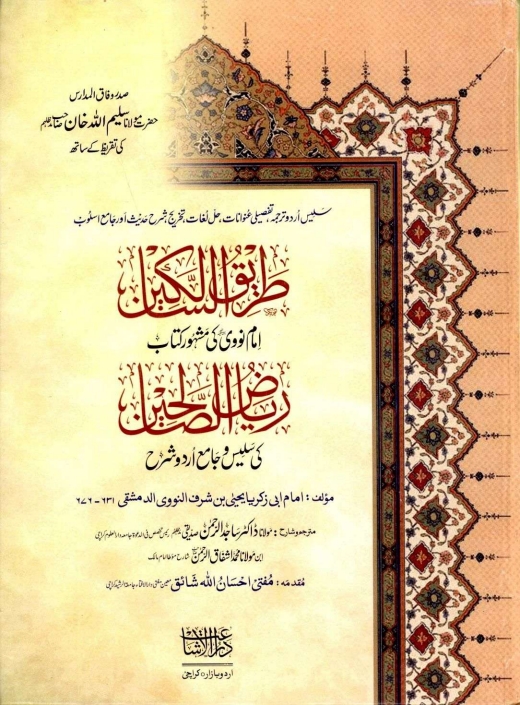 صدر وفاق المدارس
حضرت مولانا سلیم اللہ خان صاحب مدظلہم
کی تقریظ کے ساتھ
سلیس اُردو ترجمہ، تفصیلی عنوانات، حل لغات، تخریج، شرح حدیث اور جامع اسلوب
طریق السالکین
امام نووی کی مشہور کتاب
ریاض الصالحین
کی سلیس و جامع اُردو شرح
مؤلف: امام ابی زکریا یحییٰ بن شرف النووی الدمشقی ۶۳۱ - ۶۷۶
مترجم و شارح: مولانا ڈاکٹر ساجد الرحمٰن صدیقی
ابن مولانا محمد اشفاق الرحمٰن شارح موطا امام مالک
مقدمہ: مفتی احسان اللہ شائق
دارالاشاعت
اردو بازار، کراچی